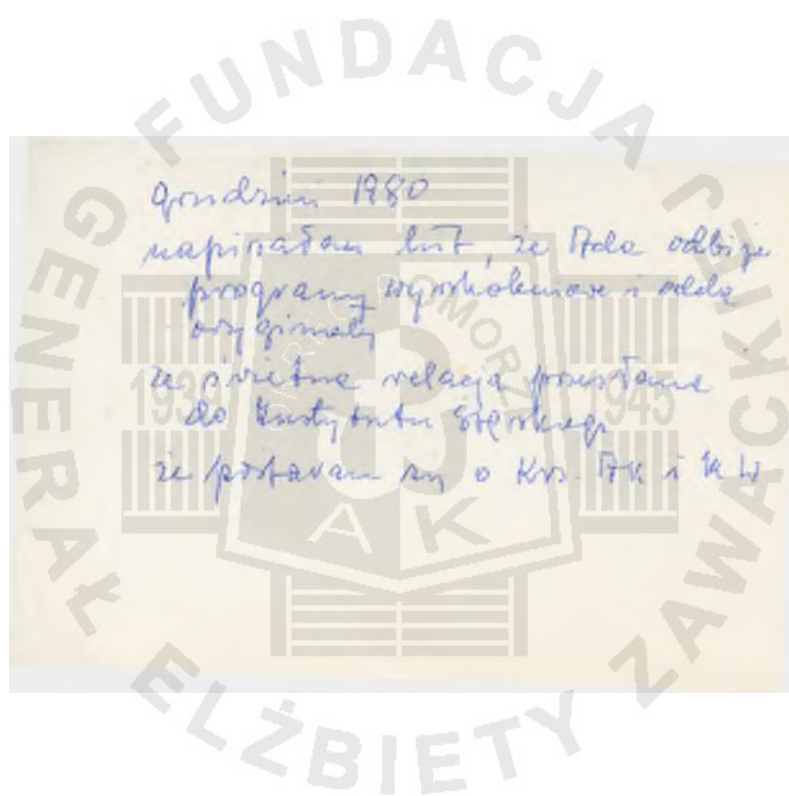 FUNDACJA GENERAŁ ELŻBIETY ZAWACKIEJ
POMORZE
1939 1945
AK
grudzień 1980
napisałam list, że Ada odbije
programy i odda
oryginały
że świetna relacja przesłana
do Instytutu Śląskiego
że postaram się o Krz. AK i KW